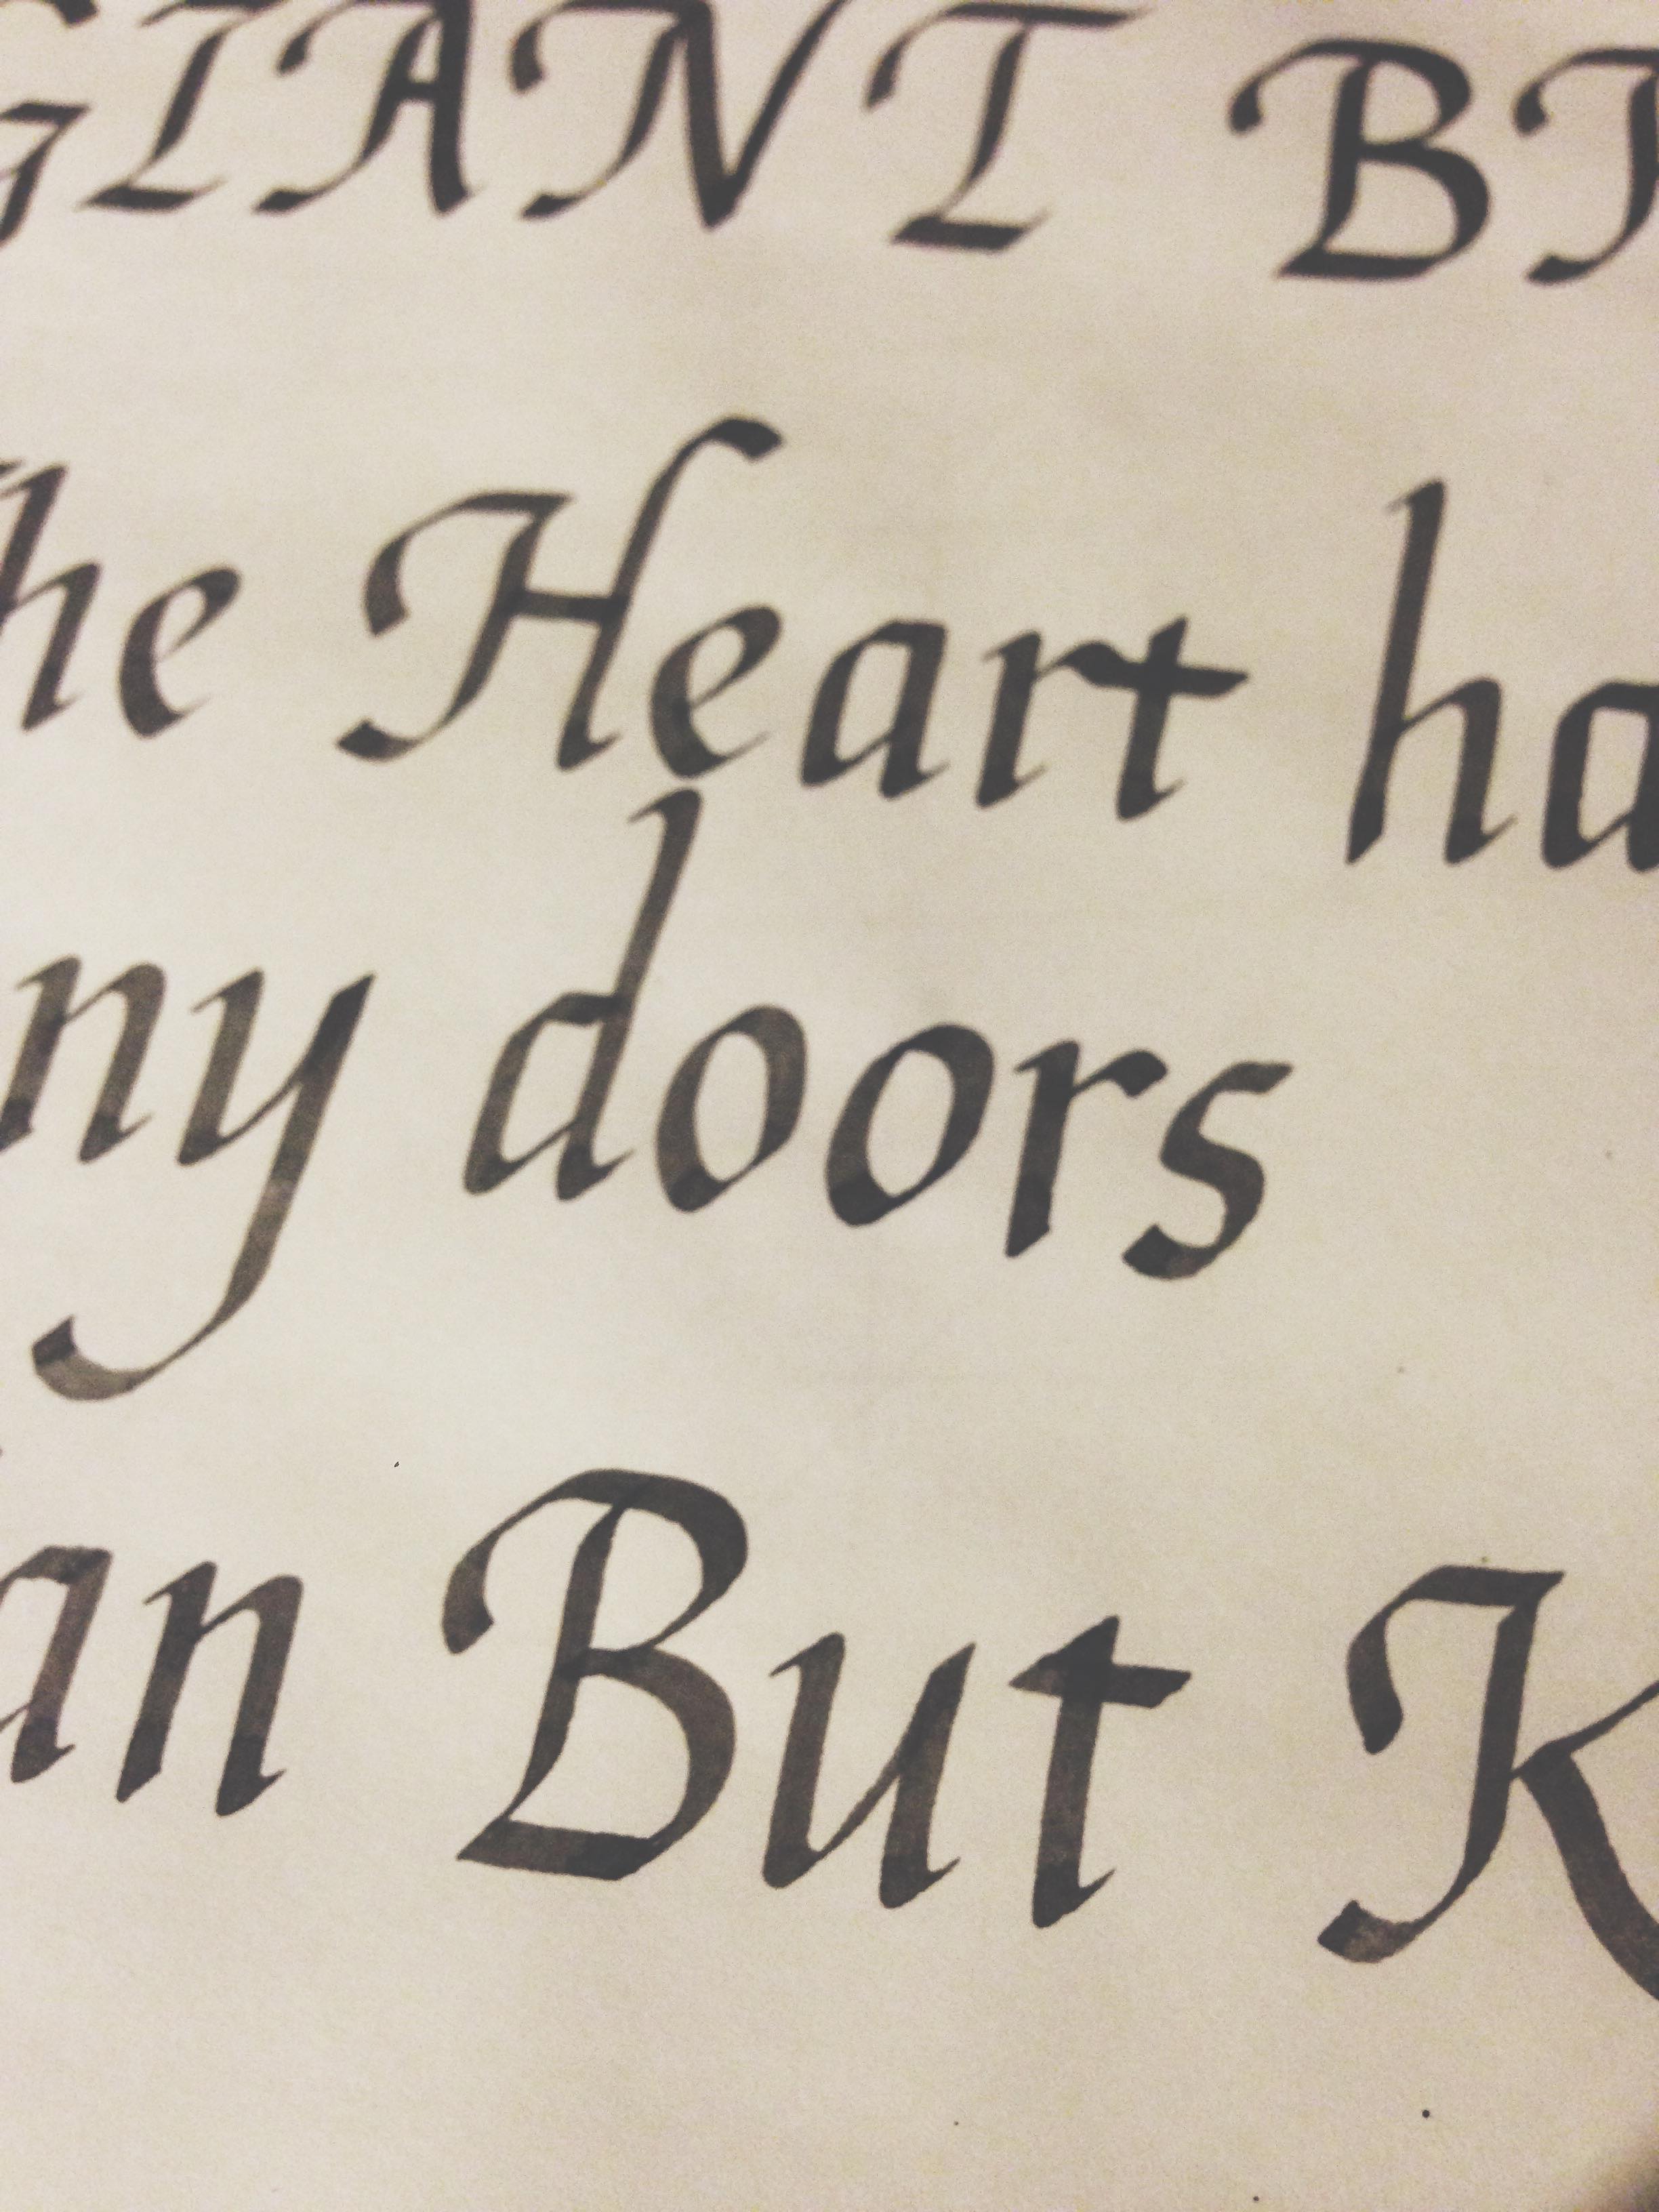 GIANT BI
he Heart ha
ny doors
an But K